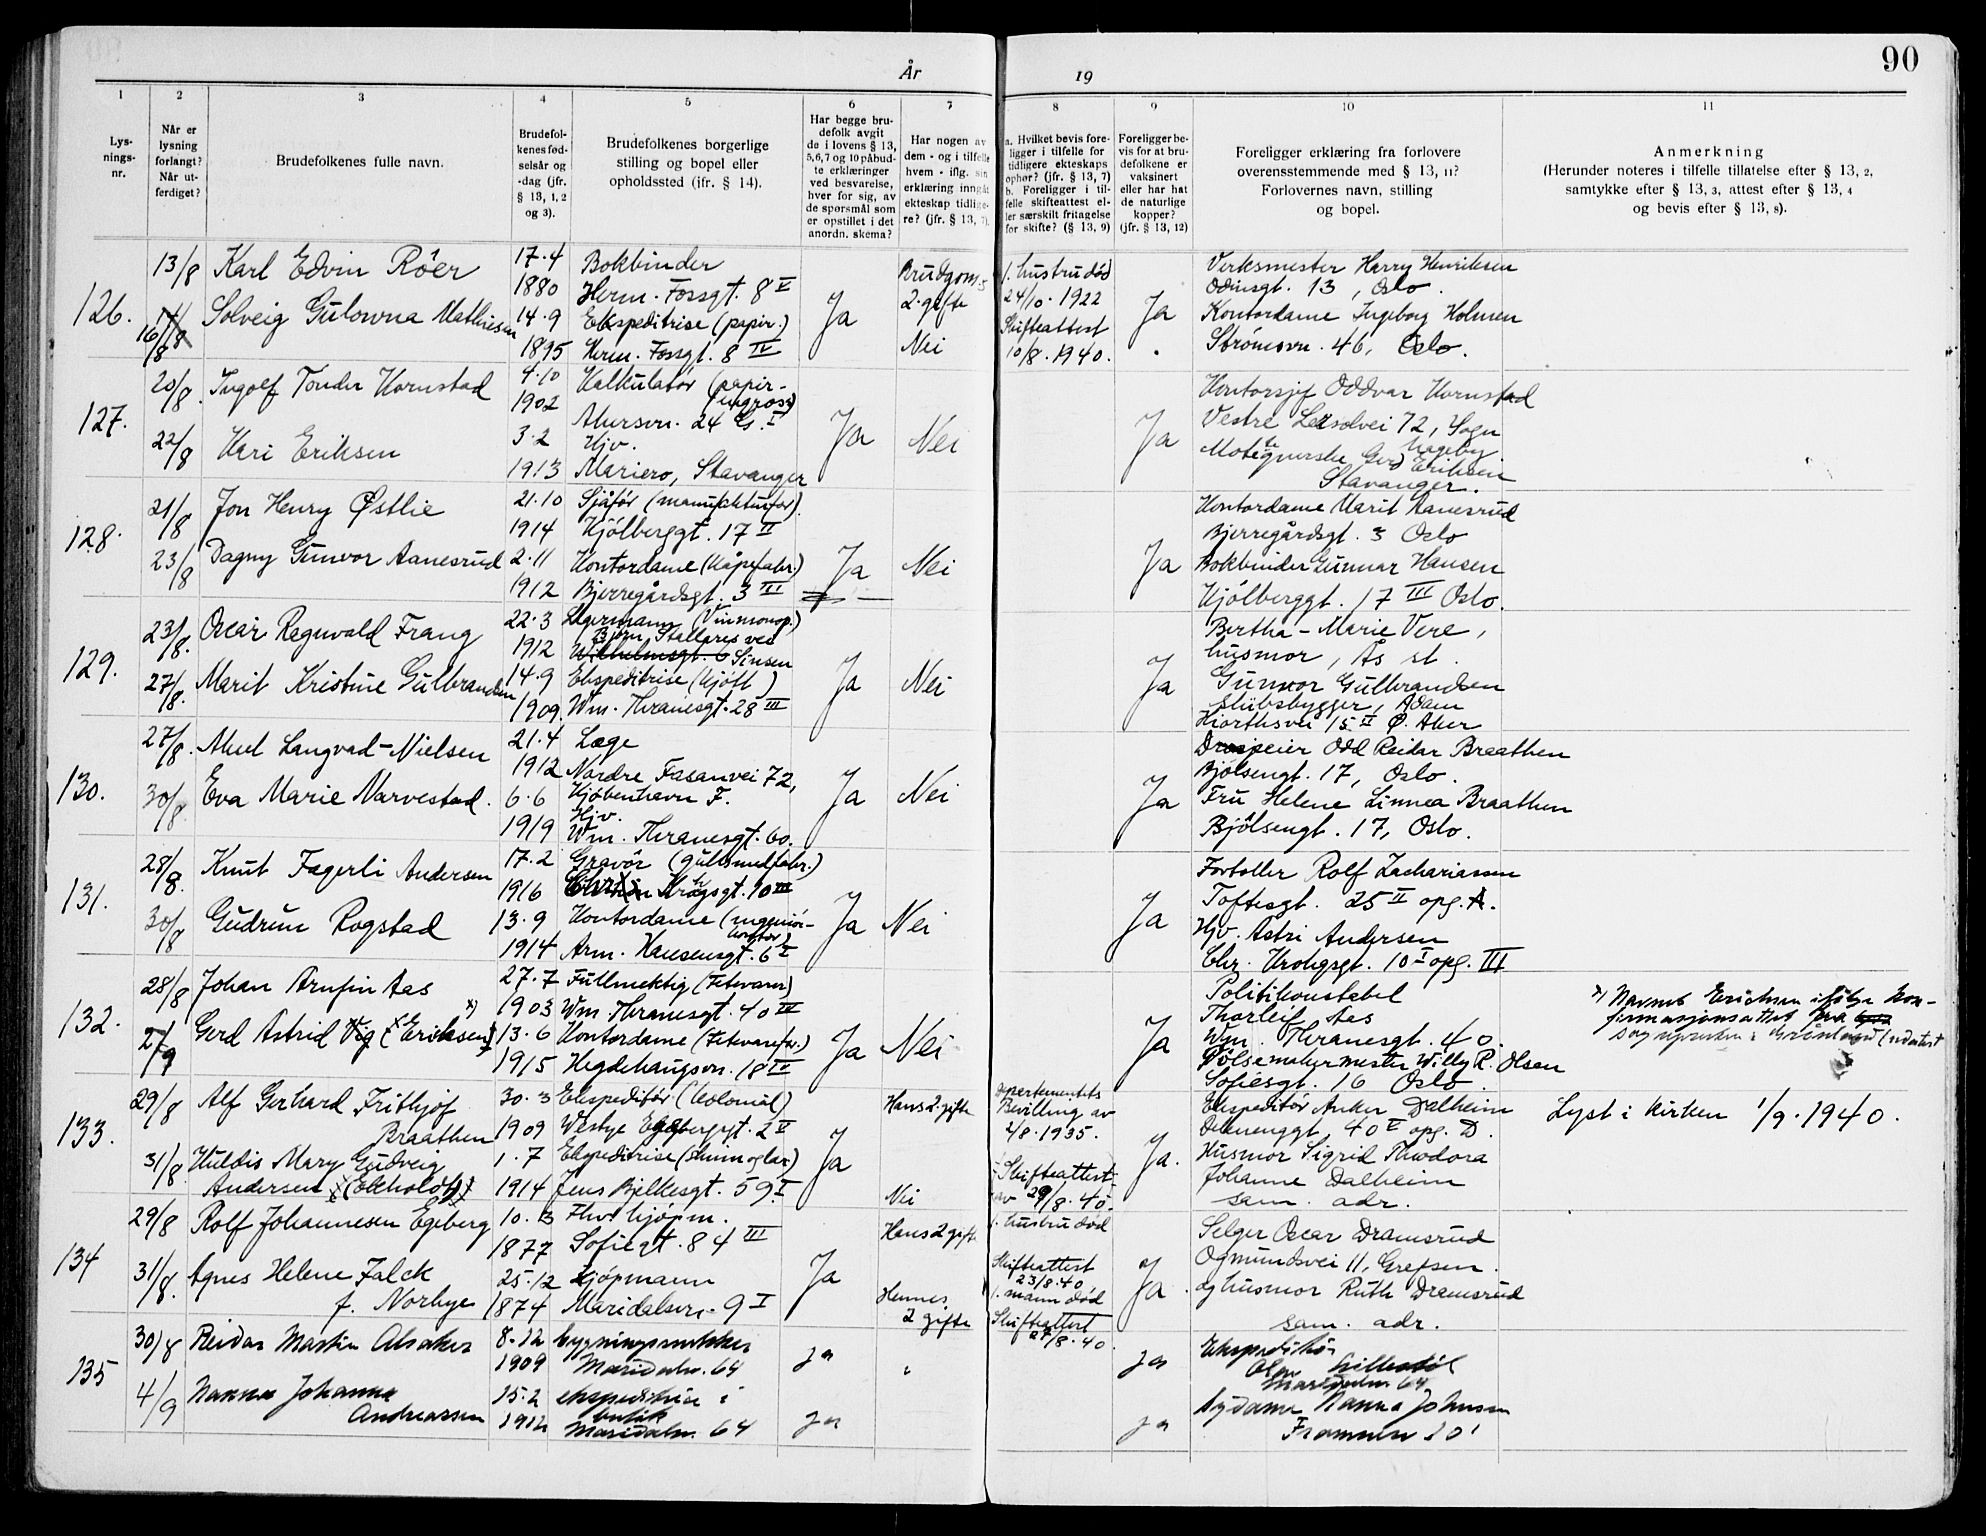 År
19
90
1
2
3
4
5
6
7
8
9
10
11
Lys-
nings-
nr.
Når er
lysning
forlangt?
Når ut-
ferdiget?
Brudefolkenes fulle navn.
Brudefol-
kenes fød-
selsår og
-dag (jfr.
§ 13, 1, 2
og 3).
Brudefolkenes borgerlige
stilling og bopel eller
opholdssted (jfr. § 14).
Har begge bru-
defolk avgit
de i lovens § 13,
5,6,7 og 10 påbud-
te erklæringer
ved besvarelse,
hver for sig, av
de spørsmål som
er opstillet i det
anordn. skema?
Har nogen av
dem - og i tilfelle
hvem - iflg. sin
erklæring inngåt
ekteskap tidlige-
re? (jfr. § 13, 7).
a. Hvilket bevis fore-
ligger i tilfelle for
tidligere ekteskaps
ophør? (jfr. § 13, 7)
b. Foreligger i til-
felle skifteattest el-
ler særskilt fritagelse
for skifte? (§ 13, 9)
Foreligger be-
vis for at bru-
defolkene er
vaksinert
eller har hat
de naturlige
kopper?
(jfr. § 13, 12)
Foreligger erklæring fra forlovere
overensstemmende med § 13, 11?
Forlovernes navn, stilling
og bopel.
Anmerkning
(Herunder noteres i tilfelle tillatelse efter § 13, 2,
samtykke efter § 13, 3, attest efter § 13, 4
og bevis efter § 13, 8).
126.
13/8
16/8
Karl Edvin Röer
Solveig Gulowna Mathiesen
17.4
1880
14.9
1895
Bokbinder
Herm. Fossgt. 8 V
Ekspeditrise (papir.)
Herm. Fossgt. 8 IV
Ja
Brudgoms
2. gifte
Nei
1. hustru død
24/10. 1922
Skifteattest
10/8. 1940.
Ja
Verksmester Harry Henriksen
Odinsgt. 13, Oslo.
Kontordame Ingeborg Holmen
Strømsvn. 46, Oslo.
127.
20/8.
22/8
Ingolf Tonder Kornstad
Kari Eriksen
4.10
1902
3.2
1913
Kalkulatør (papir-
engros)
Akersvn. 24 G. I
Hjv.
Mariero, Stavanger
Ja
Nei
Ja
Kontorsjef Oddvar Kornstad
Vestre 72, Sogn
Hageby.
Gerd Eriksen
Stavanger.
128.
21/8
23/8
Jon Henry Østlie
Dagny Gunvor Aanesrud
21.10
1914
2.11
1912
Sjåfør (manufakturfor.)
Kjölberggt. 17 II
Kontordame (Kåpefabr.)
Bjerregårdsgt. 3 III
Ja
Nei
Ja
Kontordame Marit Aanesrud
Bjerregårdsgt. 3 Oslo
Bokbinder Gunnar Hansen
Kjölberggt. 17 III Oslo.
129.
23/8.
27/8.
Oscar Ragnvald Frang
Marit Kristine Gulbrandsen
22.3
1912
14.9
1909
Lagermann (Vinmonop.)
Bjørn Stallares vei
Wilhelmsgt. 6 Sinsen
Ekspeditrise (Kjött)
Wm. Thranesgt. 28 III
Ja
Nei
Ja
Bertha-Marie Vere,
husmor, Ås st.
Gunnar Gulbrandsen
Adam
Hjorthsvei 15 II Ø. Aker
130.
27/8.
30/8.
Aksel Langvad-Nielsen
Eva Marie Narvestad.
21.4
1912
6.6
1919
Læge
Nordre Fasanvei 72,
Kjøbenhavn F.
Hjv.
Wm. Thranesgt. 60.
Ja
Nei
Ja
Drosjeeier Odd Reidar Braathen
Bjölsengt. 17, Oslo.
Fru Helene Linnea Braathen
Bjölsengt. 17, Oslo.
131.
28/8.
30/8
Knut Fagerli Andersen
Gudrun Rogstad
17.2
1916
13.9
1914
Gravör (gullsmedfabr.)
Chr. Krohgsgt. 10 III
Kontordame (ingeniör-
kontor)
Arm. Hansensgt. 6 I
Ja
Nei
Ja
Fortoller Rolf Zachariassen
Toftesgt. 25 II opg. A.
Hjv. Astri Andersen
Chr. Krohgsgt. 10 I opg. III
132.
28/8
2/9
Johan Arnfin Aas
Gerd Astrid Vig (Eriksen) x)
27.7
1903
13.6
1915
Fullmektig (Fetevarer)
Wm. Thranesgt. 40 IV
Kontordame (Fetevarefor.)
Hegdehaugsvn. 18 IV
Ja
Nei
Ja
Politikonstabel
Thorleif Aas
Wm. Thranesgt. 40.
Pölsemakermester Willy R. Olsen
Sofiesgt. 16 Oslo
x) Navnet Erichsen ifölge kon-
firmasjonsattest fra
133.
29/8
31/8.
Alf Gerhard Frithjof
Braathen
Huldis Mary Gudveig
Andersen (Ekholdt)
30.3
1909
1.7
1914
Ekspeditör (Kolonial)
Westye Egebergsgt. 2 V
Ekspeditrise (Skinn og lær)
Jens Bjelkesgt. 59 I
Ja
Hans 2. gifte
Nei
Departementets
Bevilling av
2/8. 1935.
Skifteattest
av 29/8. 40.
Ja.
Ekspeditör Anker Dalheim
40 V opg. D.
Husmor Sigrid Theodora
Johanne Dalheim
sam. adr.
Lyst i kirken 1/9. 1940.
134
29/8
31/8.
Rolf Johannesen Egeberg
Agnes Helene Falck
f. Norbye
10.3
1877
25.12
1874
Fhv. kjöpm.
Sofiegt. 84 III
Kjöpmann
Maridalsvn. 9 I
Ja
Hans 2 gifte
Hennes
2 gifte
1. hustru död
Skifteattest
23/8.40
1. mann död
Skifteattest
27/8.40.
og
Ja.
Selger Oscar Dramsrud
Ogmundsvei 11, Grefsen.
og husmor Ruth Dramsrud
sam. adr.
135
30/8
4/9
Reidar Martin Alsaker
Nanna Johanna
Andreassen
8.12
1909
15.2
1912
bygningssnekker
Maridalsv. 64
ekspeditrise i
butik
Maridalsv. 64
ja
ja
"
ja
ja
Ekspeditør
Maridalsv. 64
Sydame Nanna Johnsen
Framnesv 20 I